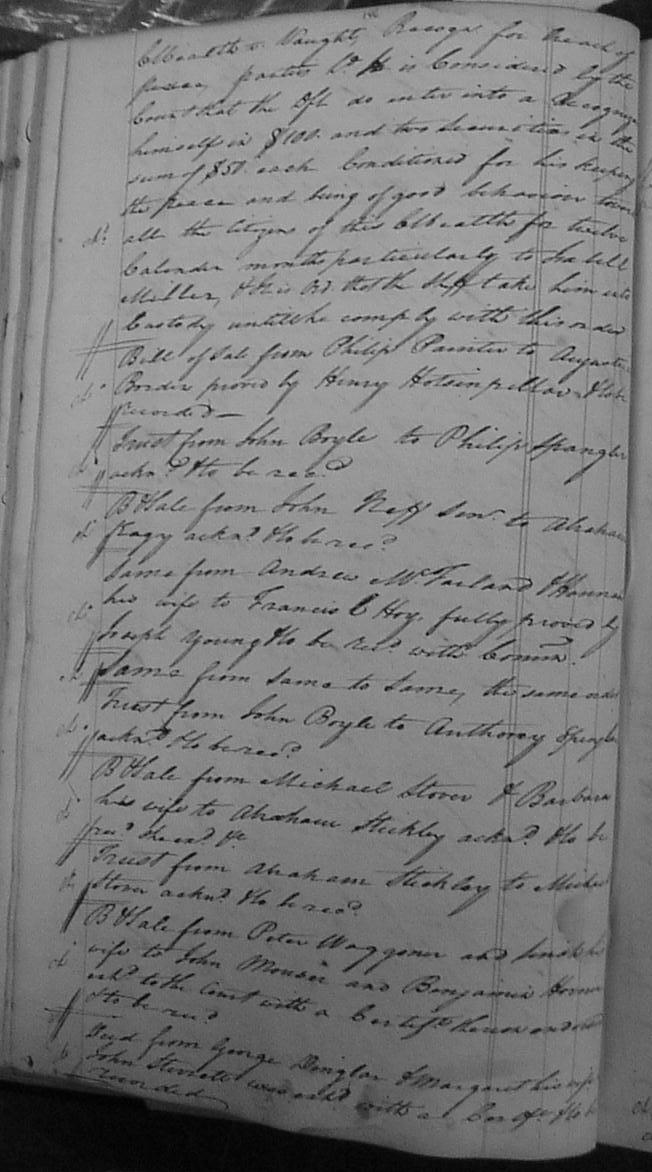 CWealth v. Vaught, Recogz. for breach of
peace, parties hd. It is Considered by the
Court that the Dft. do enter into a Recogniz
himself in $100. and two Securities in the
sum of $50. each Conditioned for his keeping
the peace and being of good behaviour towards
all the Citizens of this CWealth for twelve
Calender months particularly to
Miller, & it is Ord that the Shff take him into
Custody untill he comply with this order
Bill of Sale from Philip Painter to Augustine
Border proved by Henry Hotsinpillar & to be
recorded—
Trust from John Boyle to Philip Spangler
ackn.d & to be rec.d
B & Sale from John Neff Senr. to Abraham
ackn.d & to be rec.d
Same from Andrew McFarland & Hannah
his wife to Francis C Hoy, fully proved by
Joseph Young & to be rec.d with Commn.
Same from Same to Same, the same order
Trust from John Boyle to Anthony Spengler
ackn.d & to be rec.d
B & Sale from Michael Stover & Barbara
his wife to Abraham Stickley ackn.d & to be
rec.d
Trust from Abraham Stickley to Michael
Stover ackn.d & to be rec.d
B & Sale from Peter Waggoner and his
wife to John Mouser and Benjamin
to the Court with a Certift. thereon
& to be rec.d
Deed from George Dinglar & Margaret his wife
John was with a & to be
recorded